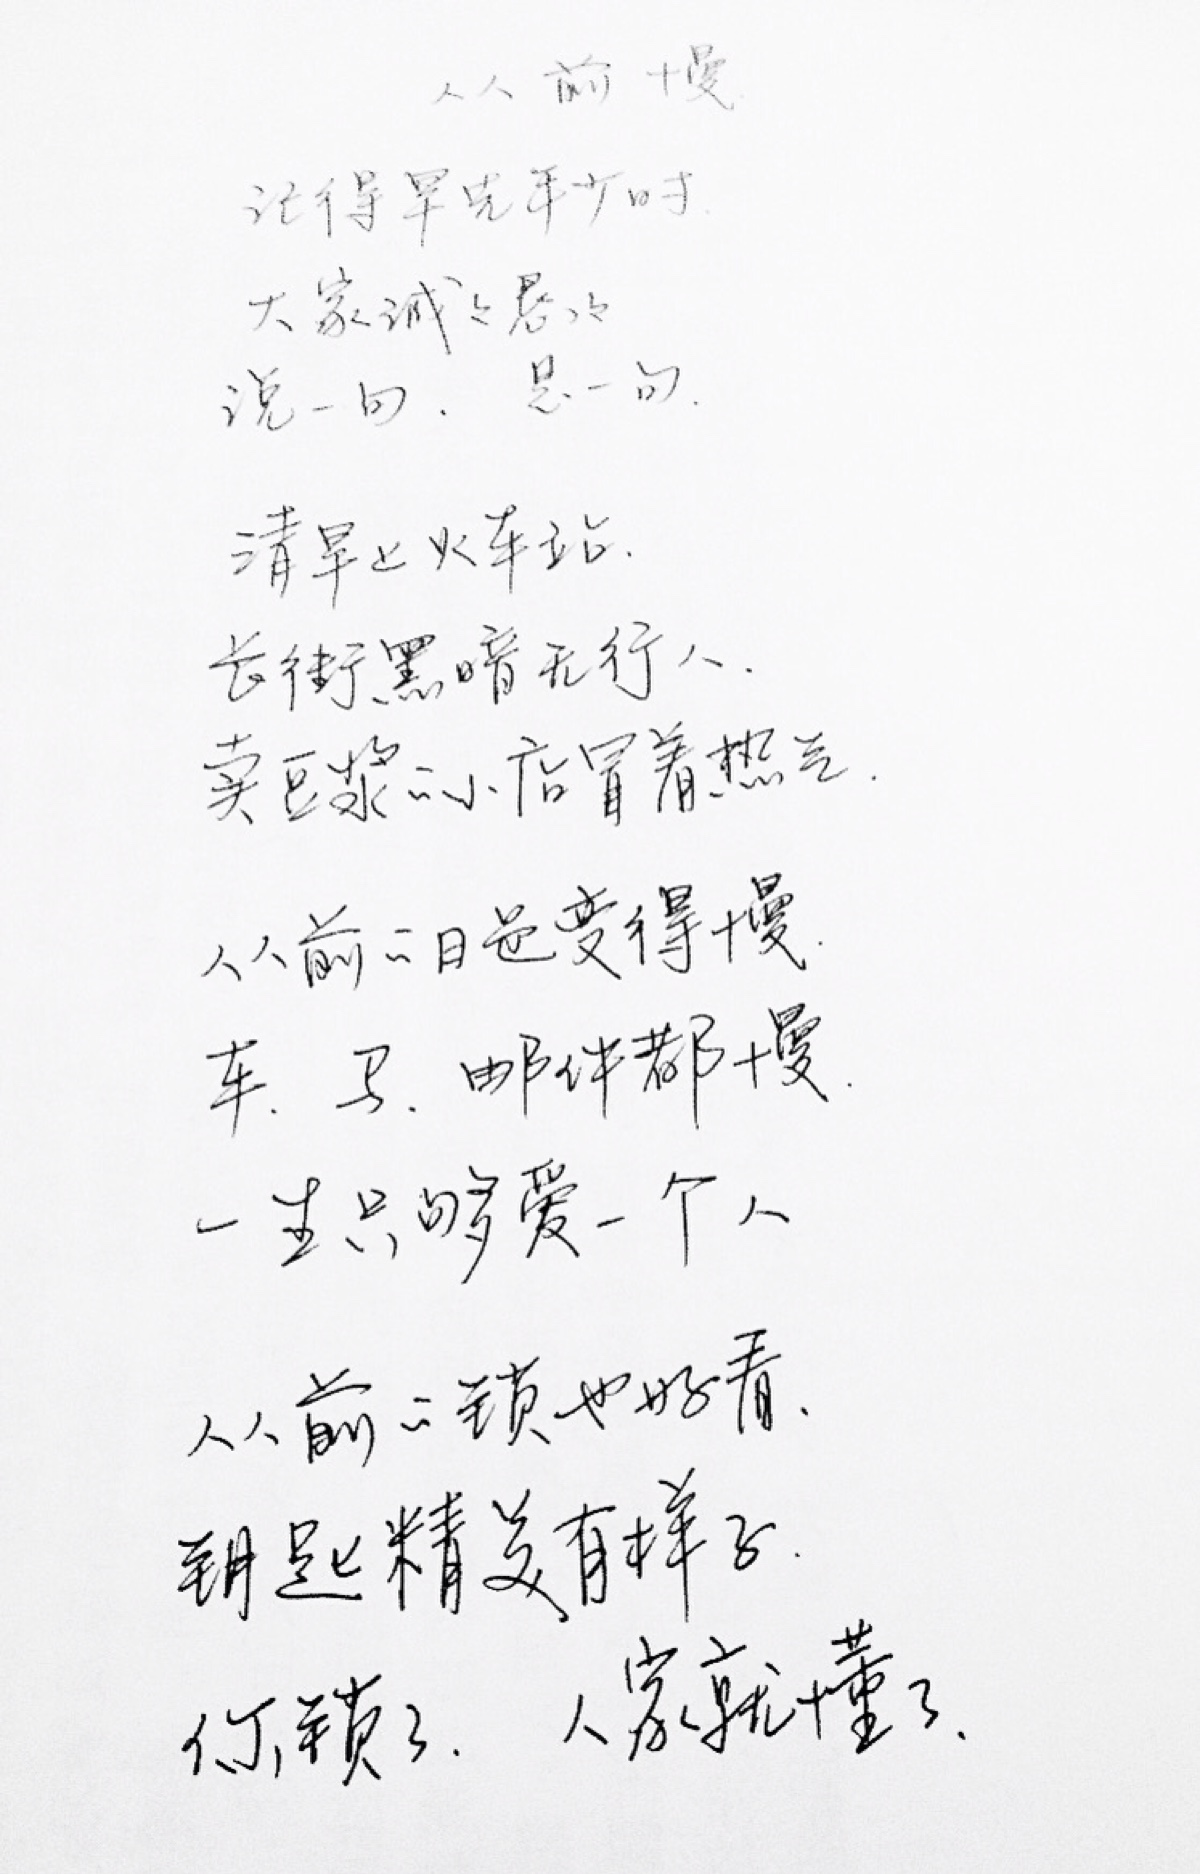 从前慢
记得早先年少时.
大家诚诚恳恳
说一句. 是一句.
清早上火车站.
长街黑暗无行人.
卖豆浆的小店冒着热气.
从前的日色变得慢.
车. 马. 邮件都慢.
一生只够爱一个人
从前的锁也好看.
钥匙精美有样子.
你锁了. 人家就懂了.